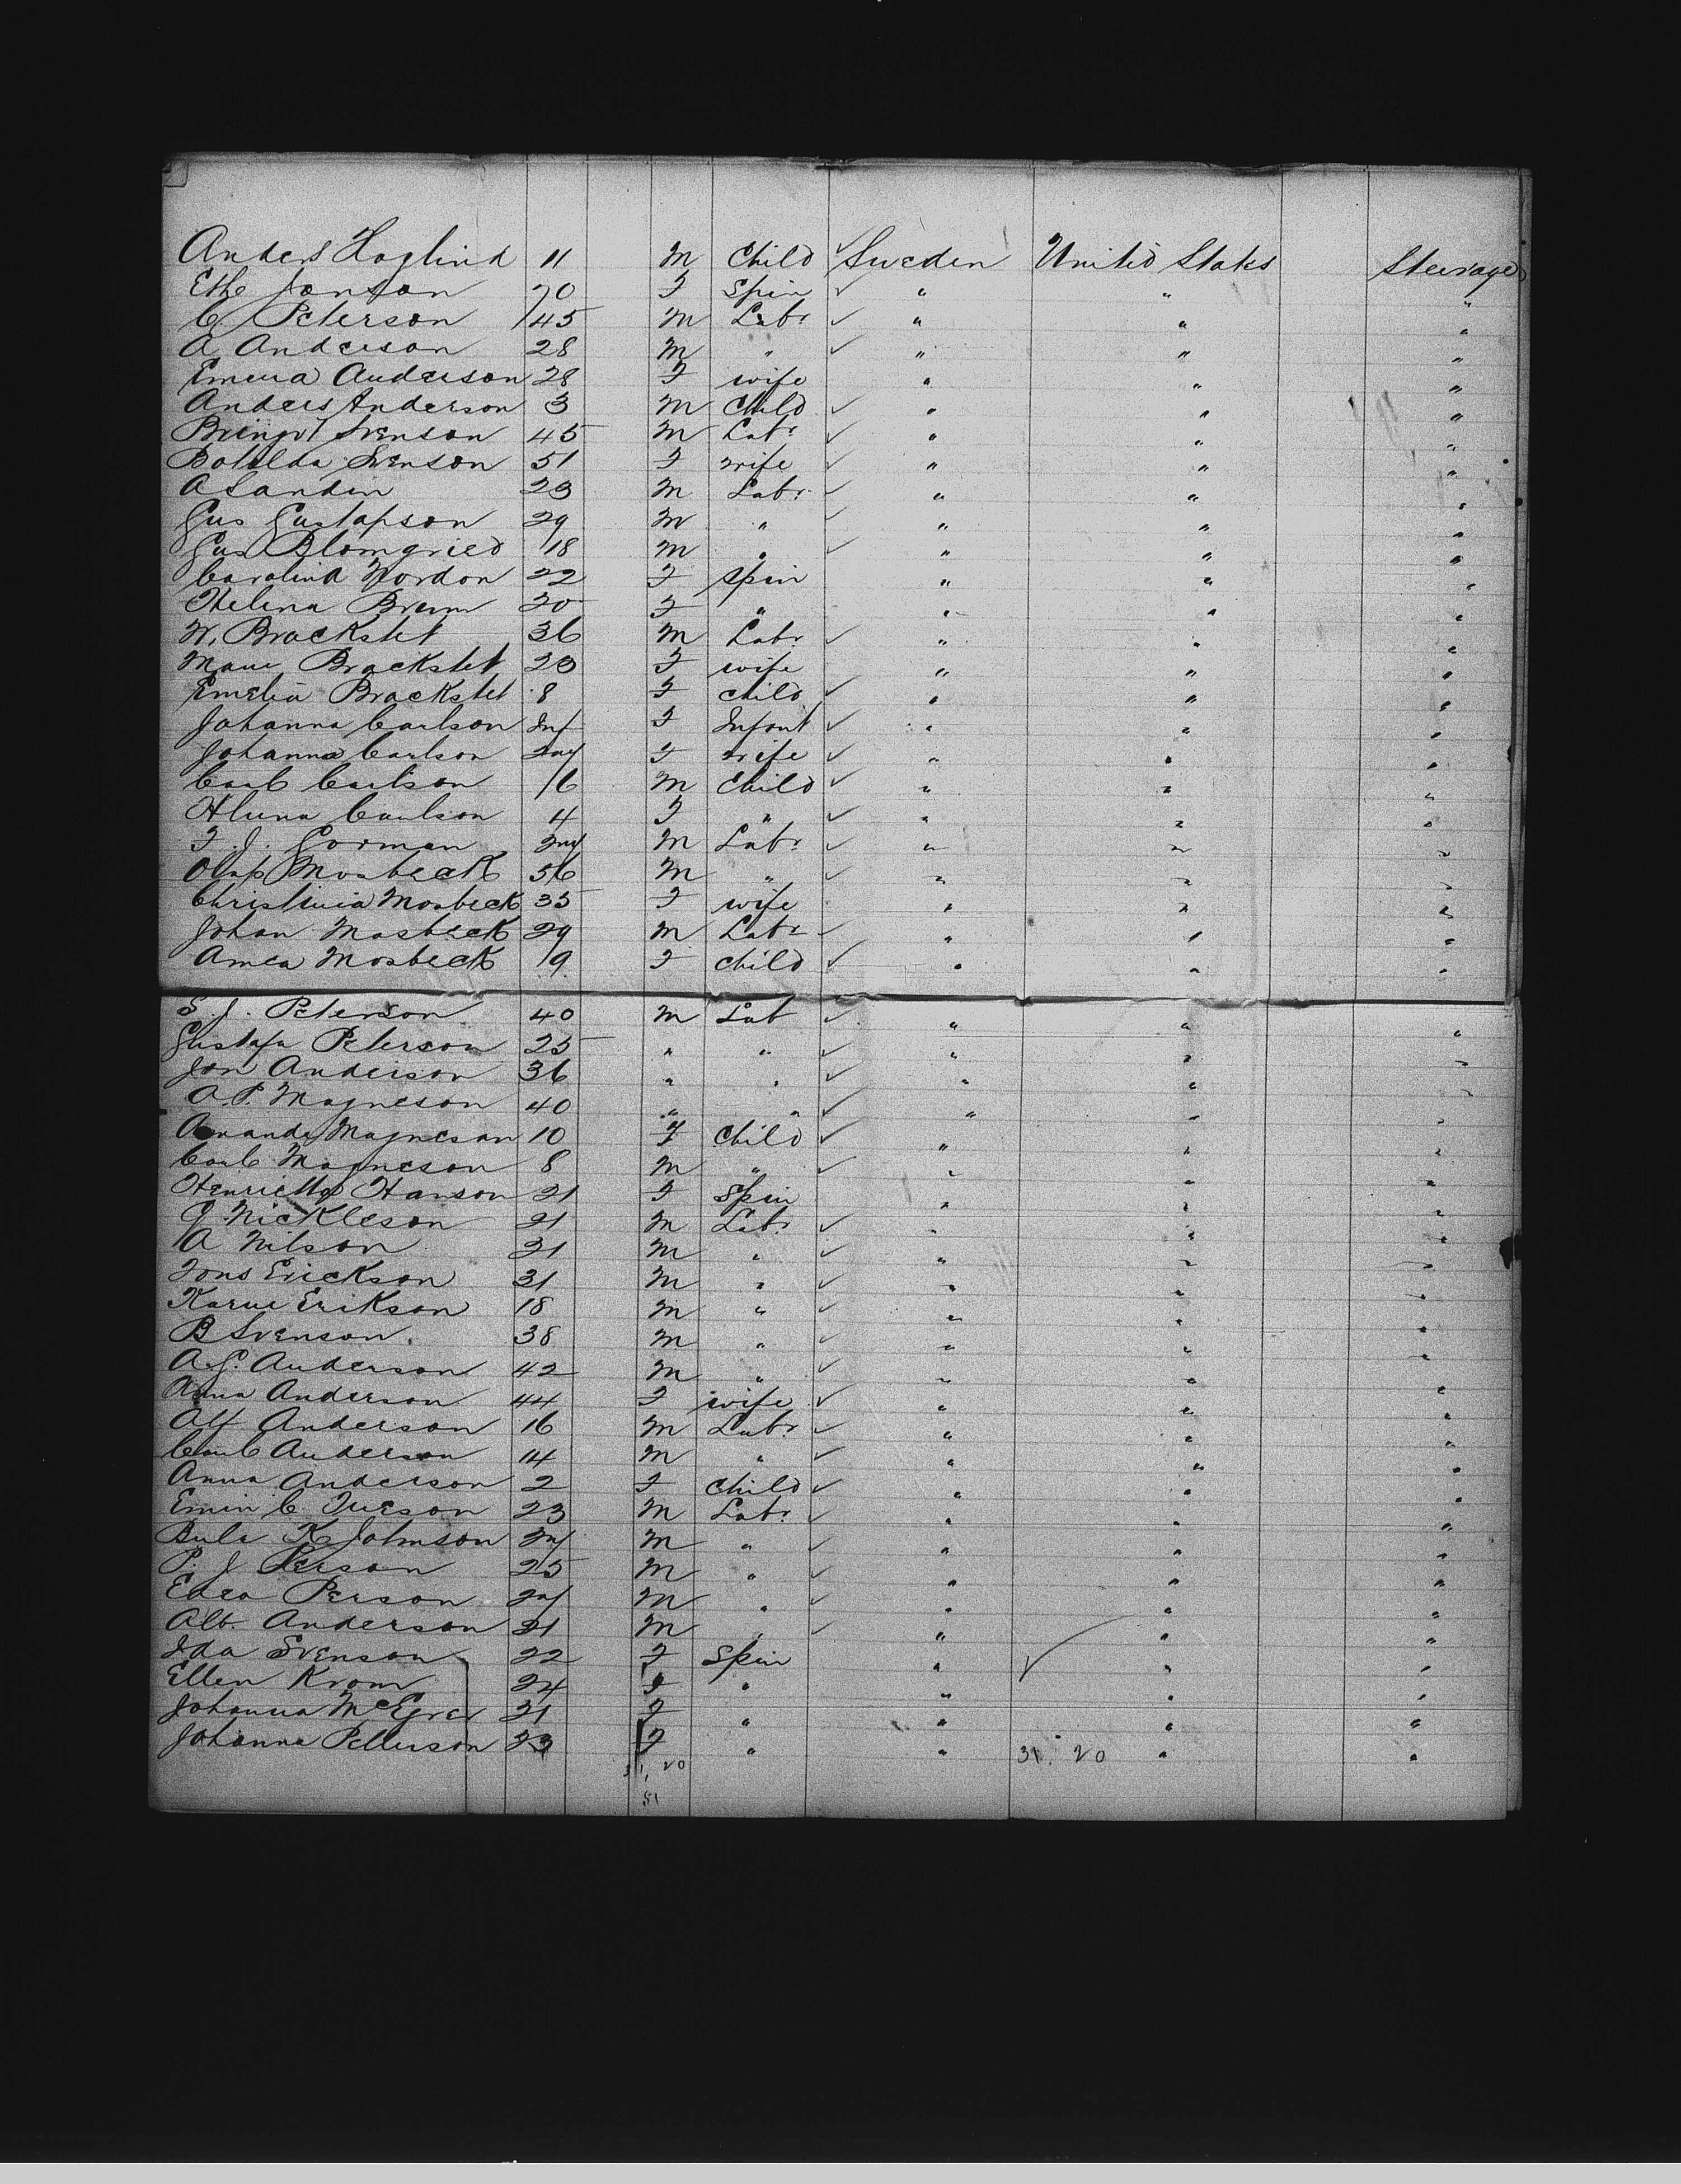 Anders Hoglind 11 M Child ✓ Sweden United States Steerage
Ethe Jonson 20 F Spin ✓ " " "
C. Peterson 45 M Labr ✓ " " "
A. Anderson 28 M " ✓ " " "
Emma Anderson 28 F wife " " "
Anders Anderson 3 M Child ✓ " " "
Svenson 45 M Labr ✓ " " "
Botilda Svenson 51 F wife ✓ " " "
A Landin 23 M Labr ✓ " " "
Gus Gustafson 29 M " ✓ " " "
Gus Blomgried 18 M " ✓ " " "
Carolina Nordon 22 F Spin " " "
Helena Brum 20 F " " " "
W. Brackstet 36 M Labr ✓ " " "
Brackstet F wife " " "
Emelia Brackstet 8 F child ✓ " " "
Johanna Carlson Inf F Infant ✓ " " "
Johanna Carlson F wife ✓ " " "
Carl Carlson 16 M Child ✓ " " "
Carlson 4 F " ✓ " " "
F. J. Gorman M Labr ✓ " " "
Olaf Mosbeck 56 M " ✓ " " "
Christinia Mosbeck 35 F wife " " "
Johan Mosbeck 29 M Labr ✓ " " "
Mosbeck 19 F child ✓ " " "
S. J. Peterson 40 M Lab ✓ " " "
Gustafu Peterson 25 " " ✓ " " "
Jon Anderson 36 " " ✓ " " "
A. P. Magneson 40 " " ✓ " " "
Amanda Magneson 10 F Child ✓ " " "
Carl Magneson 8 M " ✓ " " "
Henrietta Hanson 21 F Spin " " "
J Nickleson 21 M Labr ✓ " " "
A Nilson 31 M " ✓ " " "
Jons Erickson 31 M " ✓ " " "
Karue Erikson 18 M " ✓ " " "
B Svenson 38 M " ✓ " " "
A. G. Anderson 42 M " ✓ " " "
Anna Anderson 44 F wife ✓ " " "
Alf Anderson 16 M Labr ✓ " " "
Carl Anderson 14 M " ✓ " " "
Anna Anderson 2 F Child ✓ " " "
C. 23 M Labr ✓ " " "
K Johnson M " ✓ " " "
P. J Person 25 M " ✓ " " "
Person M " ✓ " " "
Alb. Anderson 21 M " ✓ " " "
Ida Svenson 22 F Spin " ✓ " "
Ellen Krom 24 F " " " "
Johanna 21 F " " " "
Johanna Petterson 23 F " " 31. 20 " "
31, 20
51